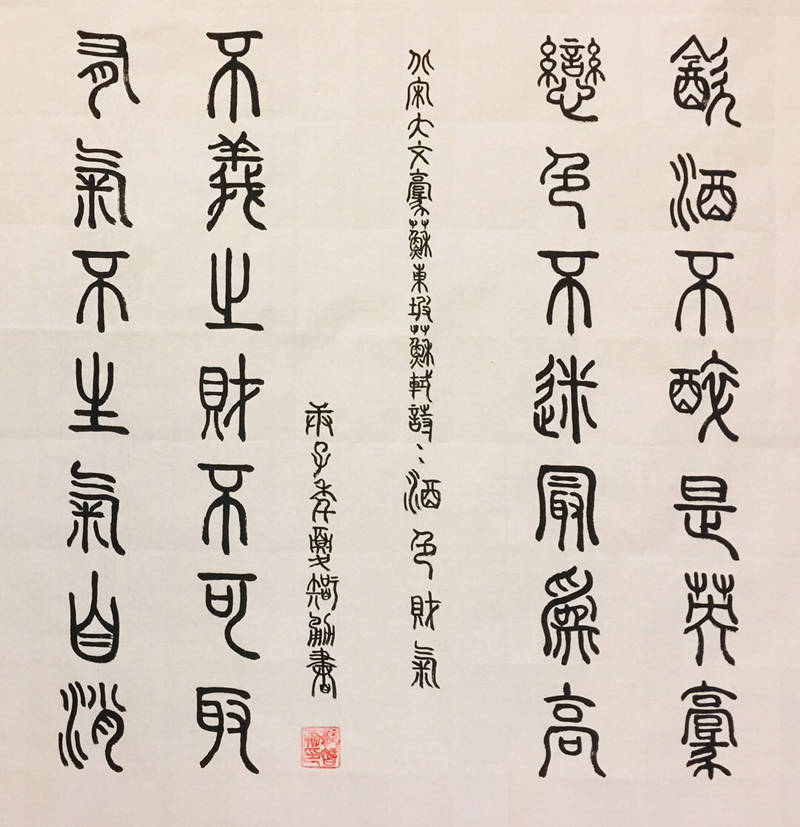 飲酒不醉是英豪
戀色不迷最為高
北宋大文豪蘇東坡蘇軾詩：酒色財氣
庚子年夏書
不義之財不可取
有氣不生氣自消